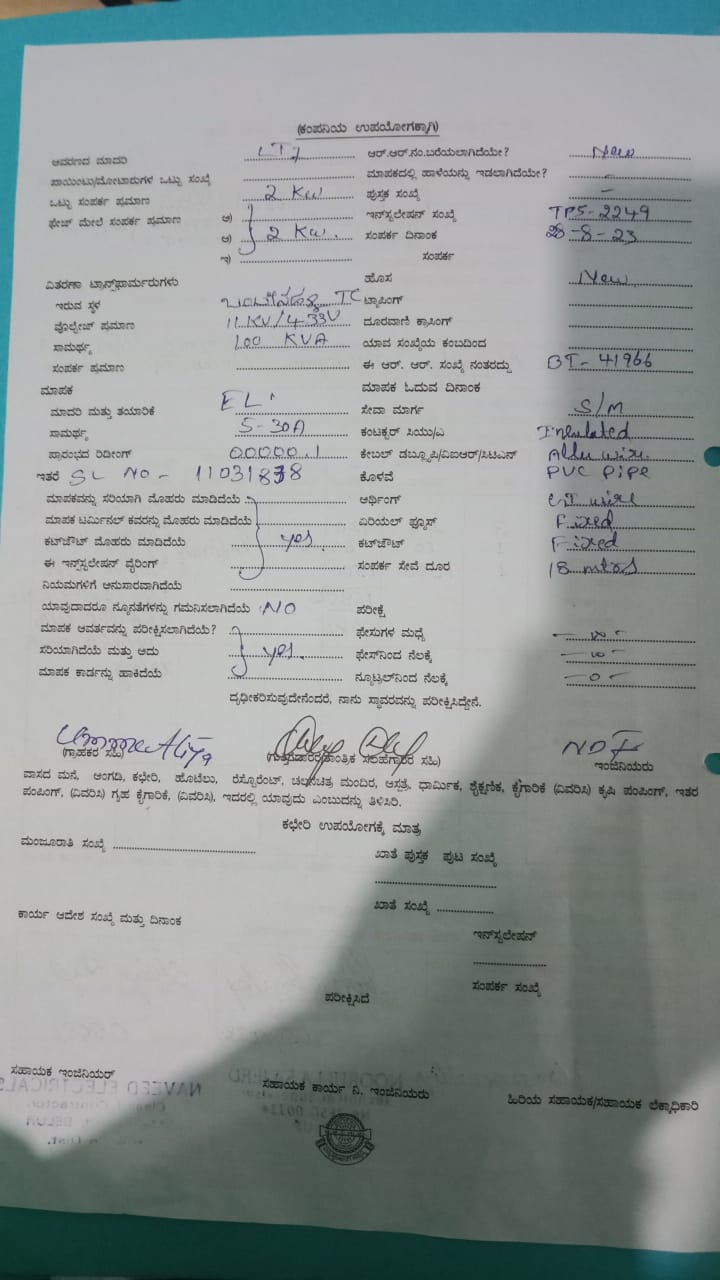 (ಕಂಪನಿಯ ಉಪಯೋಗಕ್ಕಾಗಿ)
ಆವರಣದ ಮಾದರಿ ಆರ್.ಆರ್.ನಂ.ಬರೆಯಲಾಗಿದೆಯೇ? New
ಪಾಯಿಂಟು/ಮೋಟಾರುಗಳ ಒಟ್ಟು ಸಂಖ್ಯೆ ಮಾಪಕದಲ್ಲಿ ಹಾಳೆಯನ್ನು ಇಡಲಾಗಿದೆಯೇ? -
ಒಟ್ಟು ಸಂಪರ್ಕ ಪ್ರಮಾಣ 2 KW ಪುಸ್ತಕ ಸಂಖ್ಯೆ -
ಫೇಜ್ ಮೇಲೆ ಸಂಪರ್ಕ ಪ್ರಮಾಣ ಅ) ಇನ್‌ಸ್ಟಲೇಷನ್ ಸಂಖ್ಯೆ TPS-2249
ಆ) 2 KW. ಸಂಪರ್ಕ ದಿನಾಂಕ 28-8-23
ಇ) ಸಂಪರ್ಕ
ವಿತರಣಾ ಟ್ರಾನ್ಸ್‌ಫಾರ್ಮರುಗಳು ಹೊಸ New
ಇರುವ ಸ್ಥಳ TC ಟ್ಯಾಪಿಂಗ್
ವೋಲ್ಟೇಜ್ ಪ್ರಮಾಣ 11KV/433V ದೂರವಾಣಿ ಕ್ರಾಸಿಂಗ್
ಸಾಮರ್ಥ್ಯ 100 KVA ಯಾವ ಸಂಖ್ಯೆಯ ಕಂಬದಿಂದ
ಸಂಪರ್ಕ ಪ್ರಮಾಣ ಈ ಆರ್. ಆರ್. ಸಂಖ್ಯೆ ನಂತರದ್ದು BT-41966
ಮಾಪಕ ಮಾಪಕ ಓದುವ ದಿನಾಂಕ
ಮಾದರಿ ಮತ್ತು ತಯಾರಿಕೆ ಸೇವಾ ಮಾರ್ಗ S/M
ಸಾಮರ್ಥ್ಯ 5-30A ಕಂಟಕ್ಟರ್ ಸಿಯು/ಎ Insulated
ಪ್ರಾರಂಭದ ರಿಡೀಂಗ್ 00000.1 ಕೇಬಲ್ ಡಬ್ಲ್ಯೂಪಿ/ವಿಐಆರ್/ಸಿಟಿಎಸ್ wire.
ಇತರೆ SL NO - 11031838 ಕೊಳವೆ PVC PIPE
ಮಾಪಕವನ್ನು ಸರಿಯಾಗಿ ಮೊಹರು ಮಾಡಿದೆಯೆ ಅರ್ಥಿಂಗ್ GI wire
ಮಾಪಕ ಟರ್ಮಿನಲ್ ಕವರನ್ನು ಮೊಹರು ಮಾಡಿದೆಯೆ ಏರಿಯಲ್ ಫ್ಯೂಸ್ Fixed
ಕಟ್‌ಔಟ್ ಮೊಹರು ಮಾಡಿದೆಯೆ yes ಕಟ್‌ಔಟ್ Fixed
ಈ ಇನ್‌ಸ್ಟಲೇಷನ್ ವೈರಿಂಗ್ ಸಂಪರ್ಕ ಸೇವೆ ದೂರ 18 mtrs
ನಿಯಮಗಳಿಗೆ ಅನುಸಾರವಾಗಿದೆಯೆ
ಯಾವುದಾದರೂ ನ್ಯೂನತೆಗಳನ್ನು ಗಮನಿಸಲಾಗಿದೆಯೆ NO ಪರೀಕ್ಷೆ
ಮಾಪಕ ಆವರ್ತವನ್ನು ಪರೀಕ್ಷಿಸಲಾಗಿದೆಯೆ? ಫೇಸುಗಳ ಮಧ್ಯೆ
ಸರಿಯಾಗಿದೆಯೆ ಮತ್ತು ಅದು yes. ಫೇಸ್‌ನಿಂದ ನೆಲಕ್ಕೆ
ಮಾಪಕ ಕಾರ್ಡನ್ನು ಹಾಕಿದೆಯೆ ನ್ಯೂಟ್ರಲ್‌ನಿಂದ ನೆಲಕ್ಕೆ -0-
ದೃಢೀಕರಿಸುವುದೇನೆಂದರೆ, ನಾನು ಸ್ಥಾವರವನ್ನು ಪರೀಕ್ಷಿಸಿದ್ದೇನೆ.
(ಗ್ರಾಹಕರ ಸಹಿ) (ಗುತ್ತಿಗೆದಾರರ/ತಾಂತ್ರಿಕ ಸಲಹೆಗಾರರ ಸಹಿ) ಇಂಜಿನಿಯರು
ವಾಸದ ಮನೆ, ಅಂಗಡಿ, ಕಛೇರಿ, ಹೊಟೆಲು, ರೆಸ್ಟೋರೆಂಟ್, ಚಲನಚಿತ್ರ ಮಂದಿರ, ಆಸ್ಪತ್ರೆ, ಧಾರ್ಮಿಕ, ಶೈಕ್ಷಣಿಕ, ಕೈಗಾರಿಕೆ (ವಿವರಿಸಿ) ಕೃಷಿ ಪಂಪಿಂಗ್, ಇತರ
ಪಂಪಿಂಗ್, (ವಿವರಿಸಿ) ಗೃಹ ಕೈಗಾರಿಕೆ, (ವಿವರಿಸಿ), ಇದರಲ್ಲಿ ಯಾವುದು ಎಂಬುದನ್ನು ತಿಳಿಸಿರಿ.
ಕಛೇರಿ ಉಪಯೋಗಕ್ಕೆ ಮಾತ್ರ
ಮಂಜೂರಾತಿ ಸಂಖ್ಯೆ ಖಾತೆ ಪುಸ್ತಕ ಪುಟ ಸಂಖ್ಯೆ
ಖಾತೆ ಸಂಖ್ಯೆ
ಕಾರ್ಯ ಆದೇಶ ಸಂಖ್ಯೆ ಮತ್ತು ದಿನಾಂಕ
ಇನ್‌ಸ್ಟಲೇಷನ್
ಸಂಪರ್ಕ ಸಂಖ್ಯೆ
ಪರೀಕ್ಷಿಸಿದೆ
ಸಹಾಯಕ ಇಂಜಿನಿಯರ್ ಸಹಾಯಕ ಕಾರ್ಯ ನಿ. ಇಂಜಿನಿಯರು ಹಿರಿಯ ಸಹಾಯಕ/ಸಹಾಯಕ ಲೆಕ್ಕಾಧಿಕಾರಿ